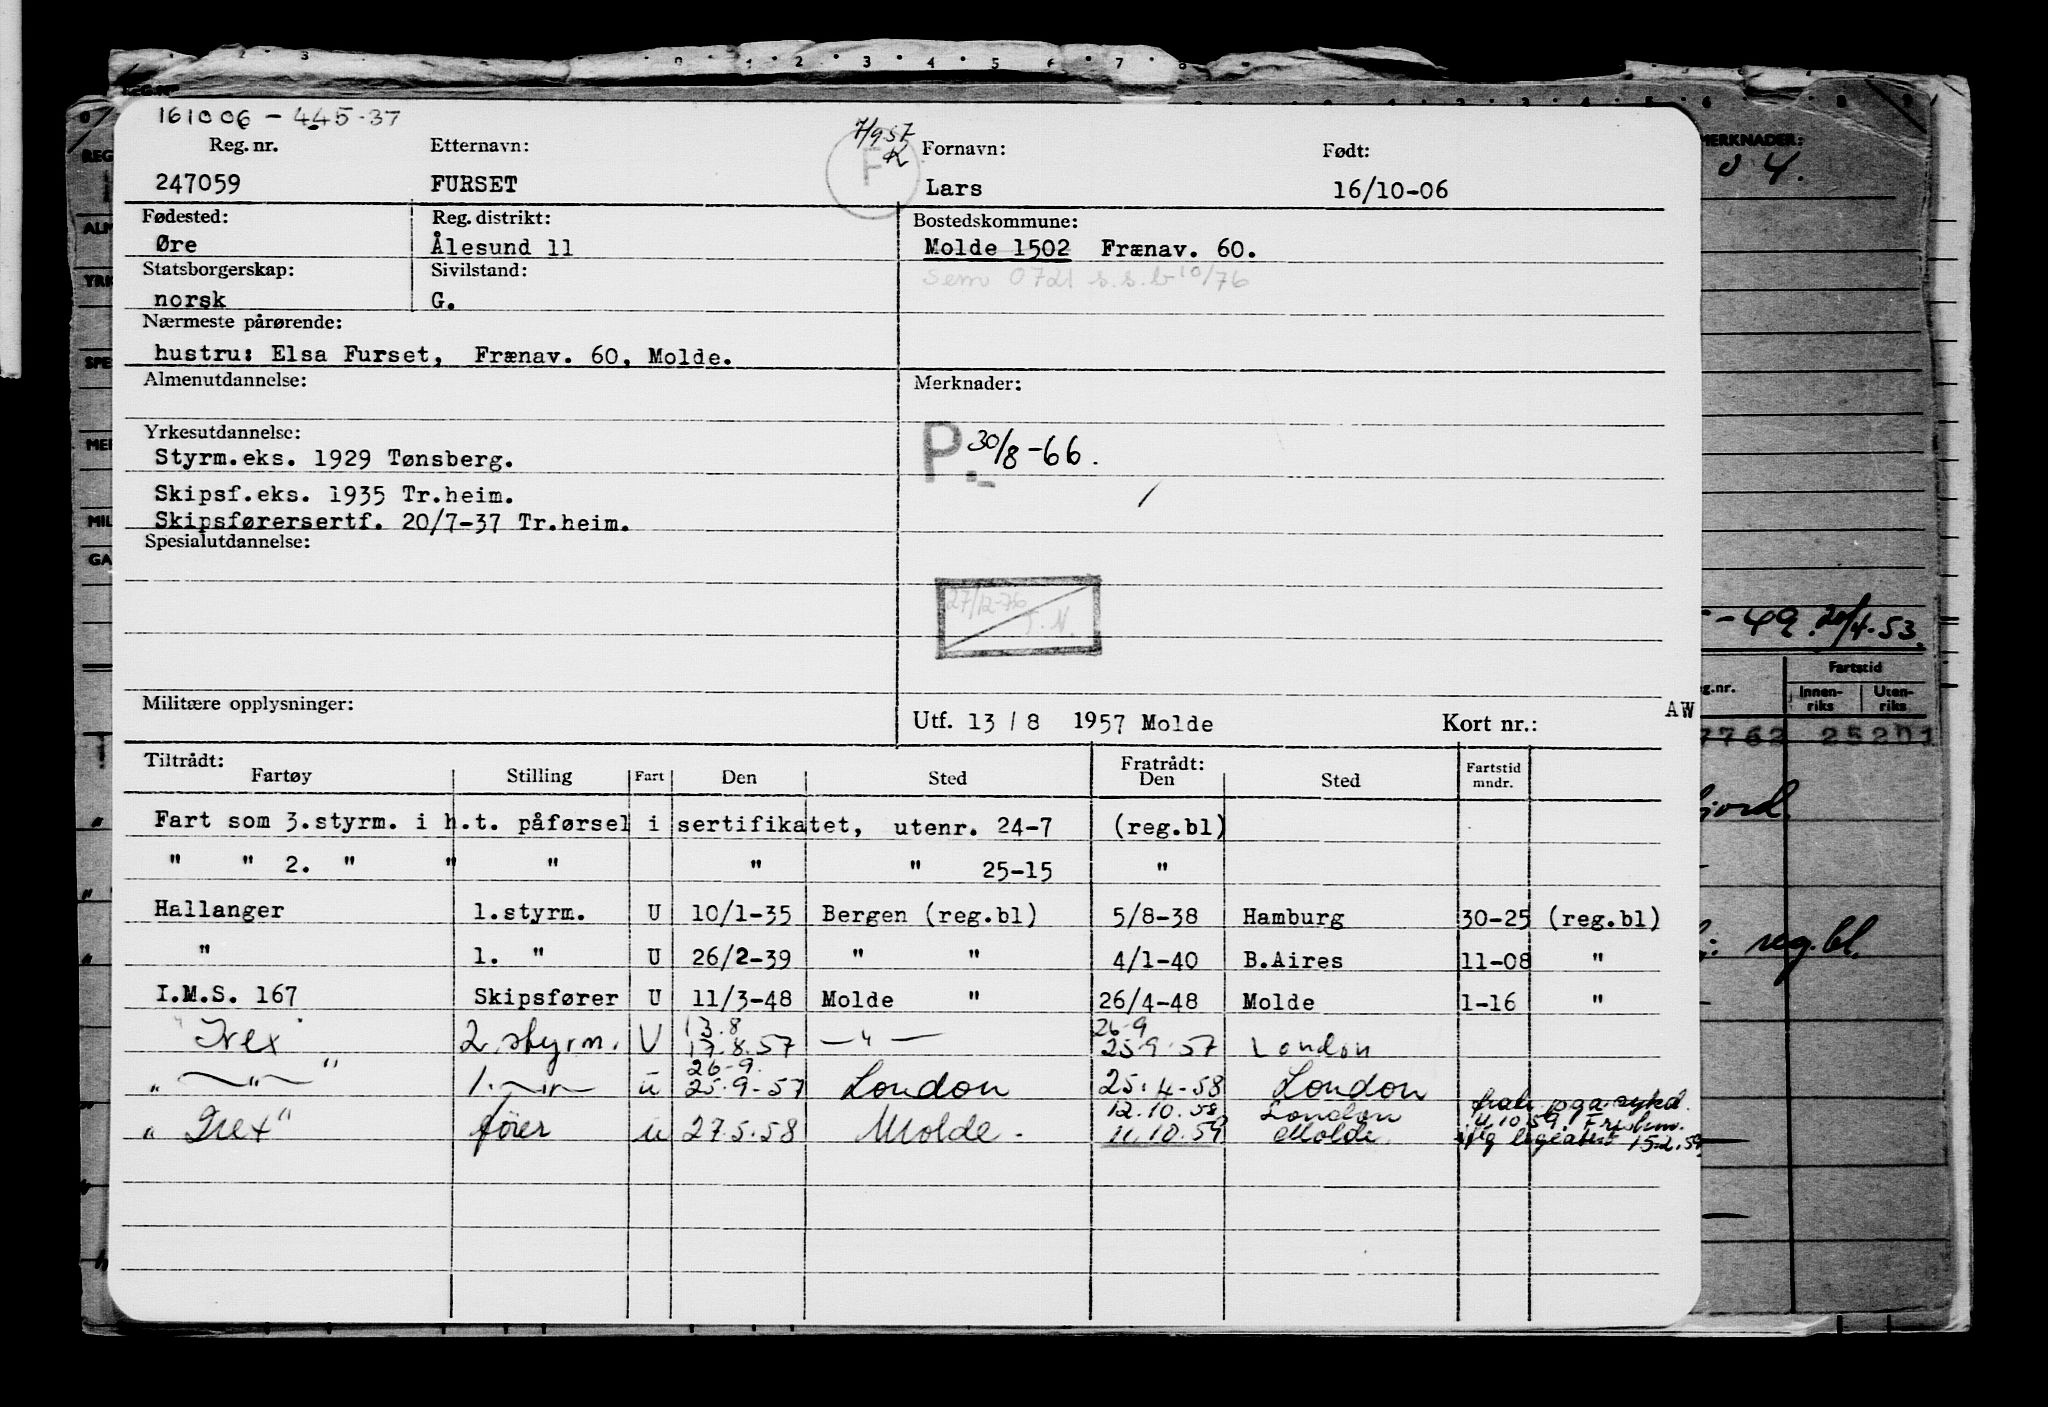 161006 - 445-37
Reg. nr. Etternavn: 7/9 57 K Fornavn: Født:
247059 FURSET F Lars 16/10-06
Fødested: Reg. distrikt: Bostedskommune:
Øre Ålesund 11 Molde 1502 Frænav. 60.
Statsborgerskap: Sivilstand: Sem 0721 s.s.b 10/76
norsk G.
Nærmeste pårørende:
hustru: Elsa Furset, Frænav. 60, Molde.
Almenutdannelse: Merknader:
Yrkesutdannelse: P. 30/8-66.
Styrm.eks. 1929 Tønsberg.
Skipsf.eks. 1935 Tr.heim.
Skipsførersertf. 20/7-37 Tr.heim.
Spesialutdannelse:
27/12-76
Militære opplysninger: Utf. 13 / 8 1957 Molde Kort nr.: AW
Tiltrådt: Fratrådt:
Fartøy Stilling Fart Den Sted Den Sted Fartstid mndr.
Fart som 3.styrm. i h.t. påførsel i sertifikatet, utenr. 24-7 (reg.bl)
" " 2. " " " " " 25-15 "
Hallanger 1.styrm. U 10/1-35 Bergen (reg.bl) 5/8-38 Hamburg 30-25 (reg.bl)
" 1. " U 26/2-39 " " 4/1-40 B.Aires 11-08 "
I.M.S. 167 Skipsfører U 11/3-48 Molde " 26/4-48 Molde 1-16 "
13.8 26-9
"Trex" 2. styrm. U 17.8.57 — " — 25.9.57 London
26-9.
" — " — " 1. — " — u 25.9-57 London 25.4-58 London
12.10.58 London
"Trex" fører u 27.5.58 Molde. 11.10.59 Molde.
fratr. pga. sykd.
11.10.59. Frislm.
15.2.59
MERKNADER:
-49 20/4-53.
Fartstid
g.nr. Innen-riks Uten-riks
7762 25201
jord
reg.bl.